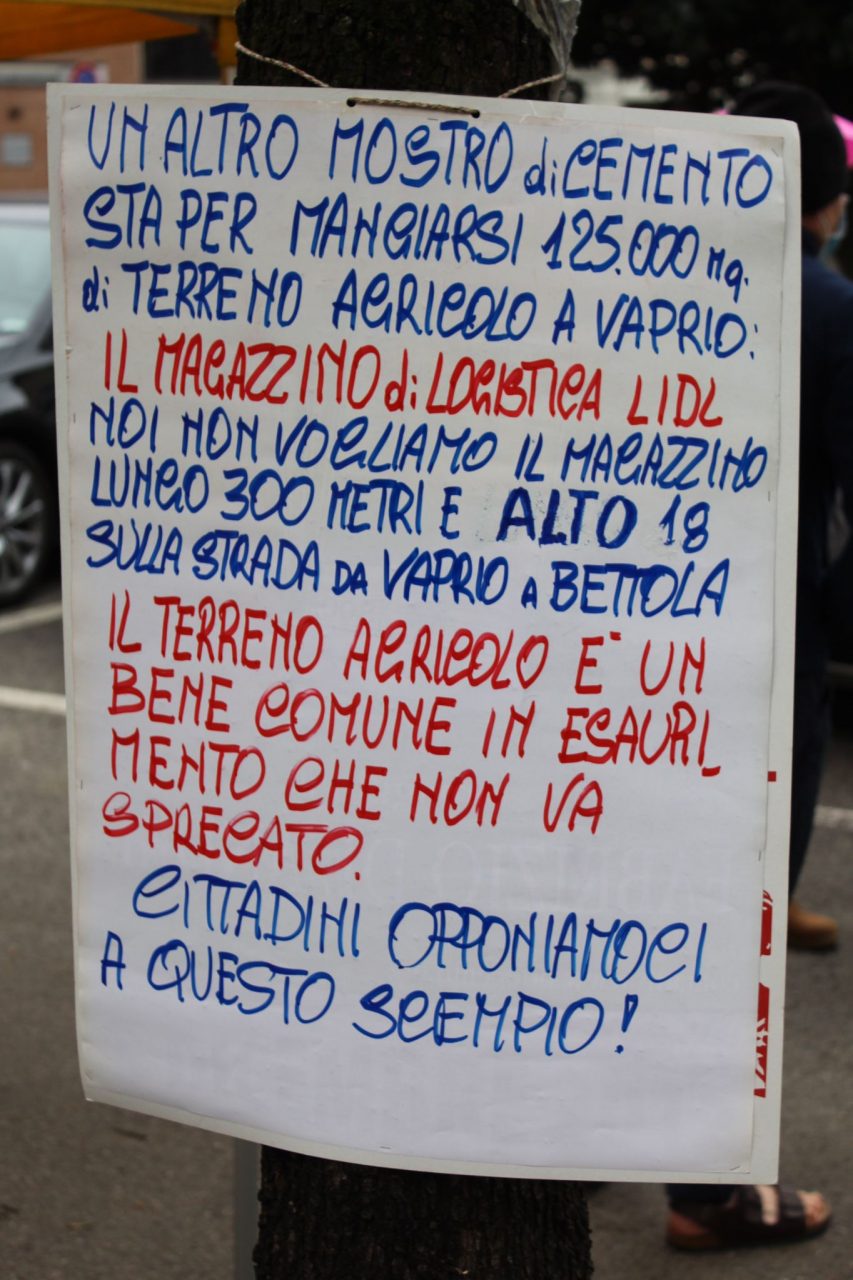 UN ALTRO MOSTRO di CEMENTO
STA PER MANGIARSI 125.000 mq.
di TERRENO AGRICOLO A VAPRIO:
IL MAGAZZINO di LOGISTICA LIDL
NOI NON VOGLIAMO IL MAGAZZINO
LUNGO 300 METRI E ALTO 18
SULLA STRADA DA VAPRIO A BETTOLA
IL TERRENO AGRICOLO E' UN
BENE COMUNE IN ESAURI_
MENTO CHE NON VA
SPRECATO.
CITTADINI OPPONIAMOCI
A QUESTO SCEMPIO!